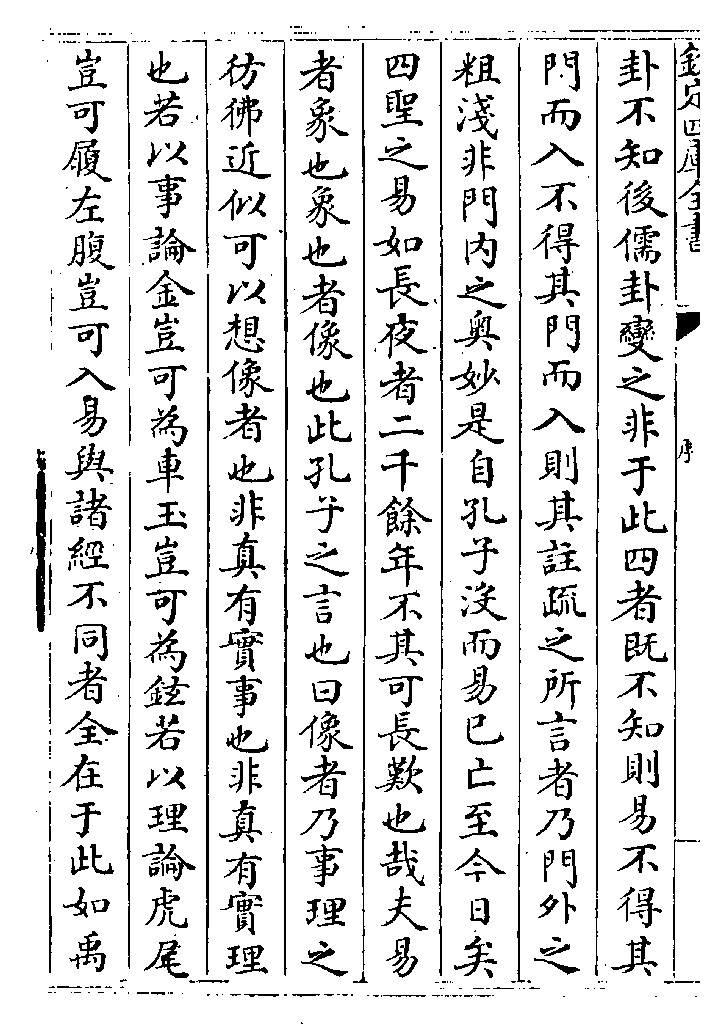 欽定四庫全書
序
卦不知後儒卦變之非于此四者既不知則易不得其
門而入不得其門而入則其註疏之所言者乃門外之
粗淺非門內之奥妙是自孔子沒而易已亡至今日矣
四聖之易如長夜者二千餘年不其可長歎也哉夫易
者象也象也者像也此孔子之言也曰像者乃事理之
彷彿近似可以想像者也非真有實事也非真有實理
也若以事論金豈可為車玉豈可為鉉若以理論虎尾
豈可履左腹豈可入易與諸經不同者全在于此如禹